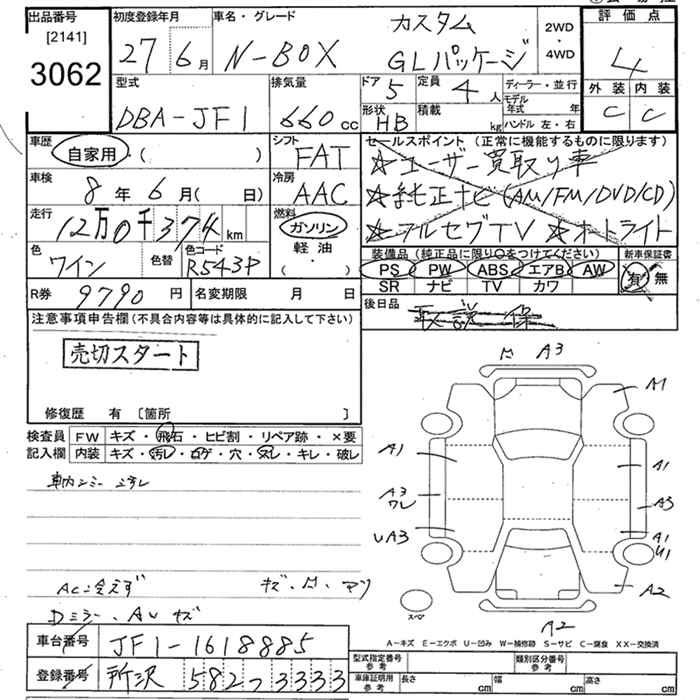 出品番号
[2141]
3062
初度登録年月
27年 6月
車名・グレード
N-BOX
カスタム
GLパッケージ
2WD
・
4WD
評価点
4
外装 内装
C C
型式
DBA-JF1
排気量
660cc
ドア
5
定員
4人
形状
HB
積載
kg
ディーラー・並行
モデル年式 年
ハンドル 左・右
車歴
自家用・( )
シフト
FAT
セールスポイント (正常に機能するものに限ります)
☆ユーザー買取り車
☆純正ナビ(AM/FM/DVD/CD)
☆フルセグTV ☆オートライト
車検
8年 6月( 日)
冷房
AAC
走行
12万0千374km
燃料
ガソリン
軽油
・( )
色
ワイン
色替
色コード
R543P
装備品 (純正品に限り○をつけてください)
新車保証書
PS PW ABS エアB AW
SR ナビ TV カワ
有・無
R券 9790円
名変期限 月 日
後日品
取説 保
注意事項申告欄 (不具合内容等は具体的に記入して下さい)
売切スタート
修復歴 有 〔箇所 〕
検査員記入欄
FW キズ・飛石・ヒビ割・リペア跡・×要
内装 キズ・汚レ・コゲ・穴・スレ・キレ・破レ
A3
A1
A1
A1
A3
ワレ
A3
UA3
A1
U1
A2
スペア
A2
AC冷えず
Dミラー、AWキズ
A-キズ E-エクボ U-凹み W-補修跡 S-サビ C-腐食 XX-交換済
車台番号 JF1-1618885
登録番号 所沢 582 3333
型式指定番号 参考
類別区分番号 参考
車庫証明用 参考 長さ cm 幅 cm 高さ cm